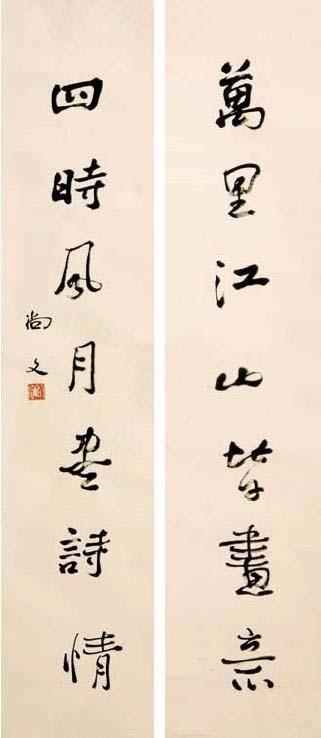 萬里江山皆畫意
四時風月盡詩情
尚文